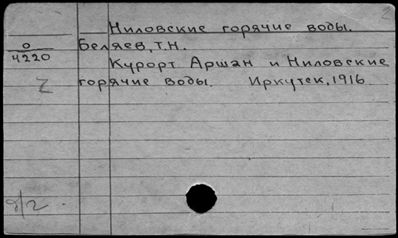 Ниловские горячие воды.
О
4220
Беляев, Т.Н.
Курорт Аршан и Ниловские
горячие воды. Иркутск, 1916
Z
2